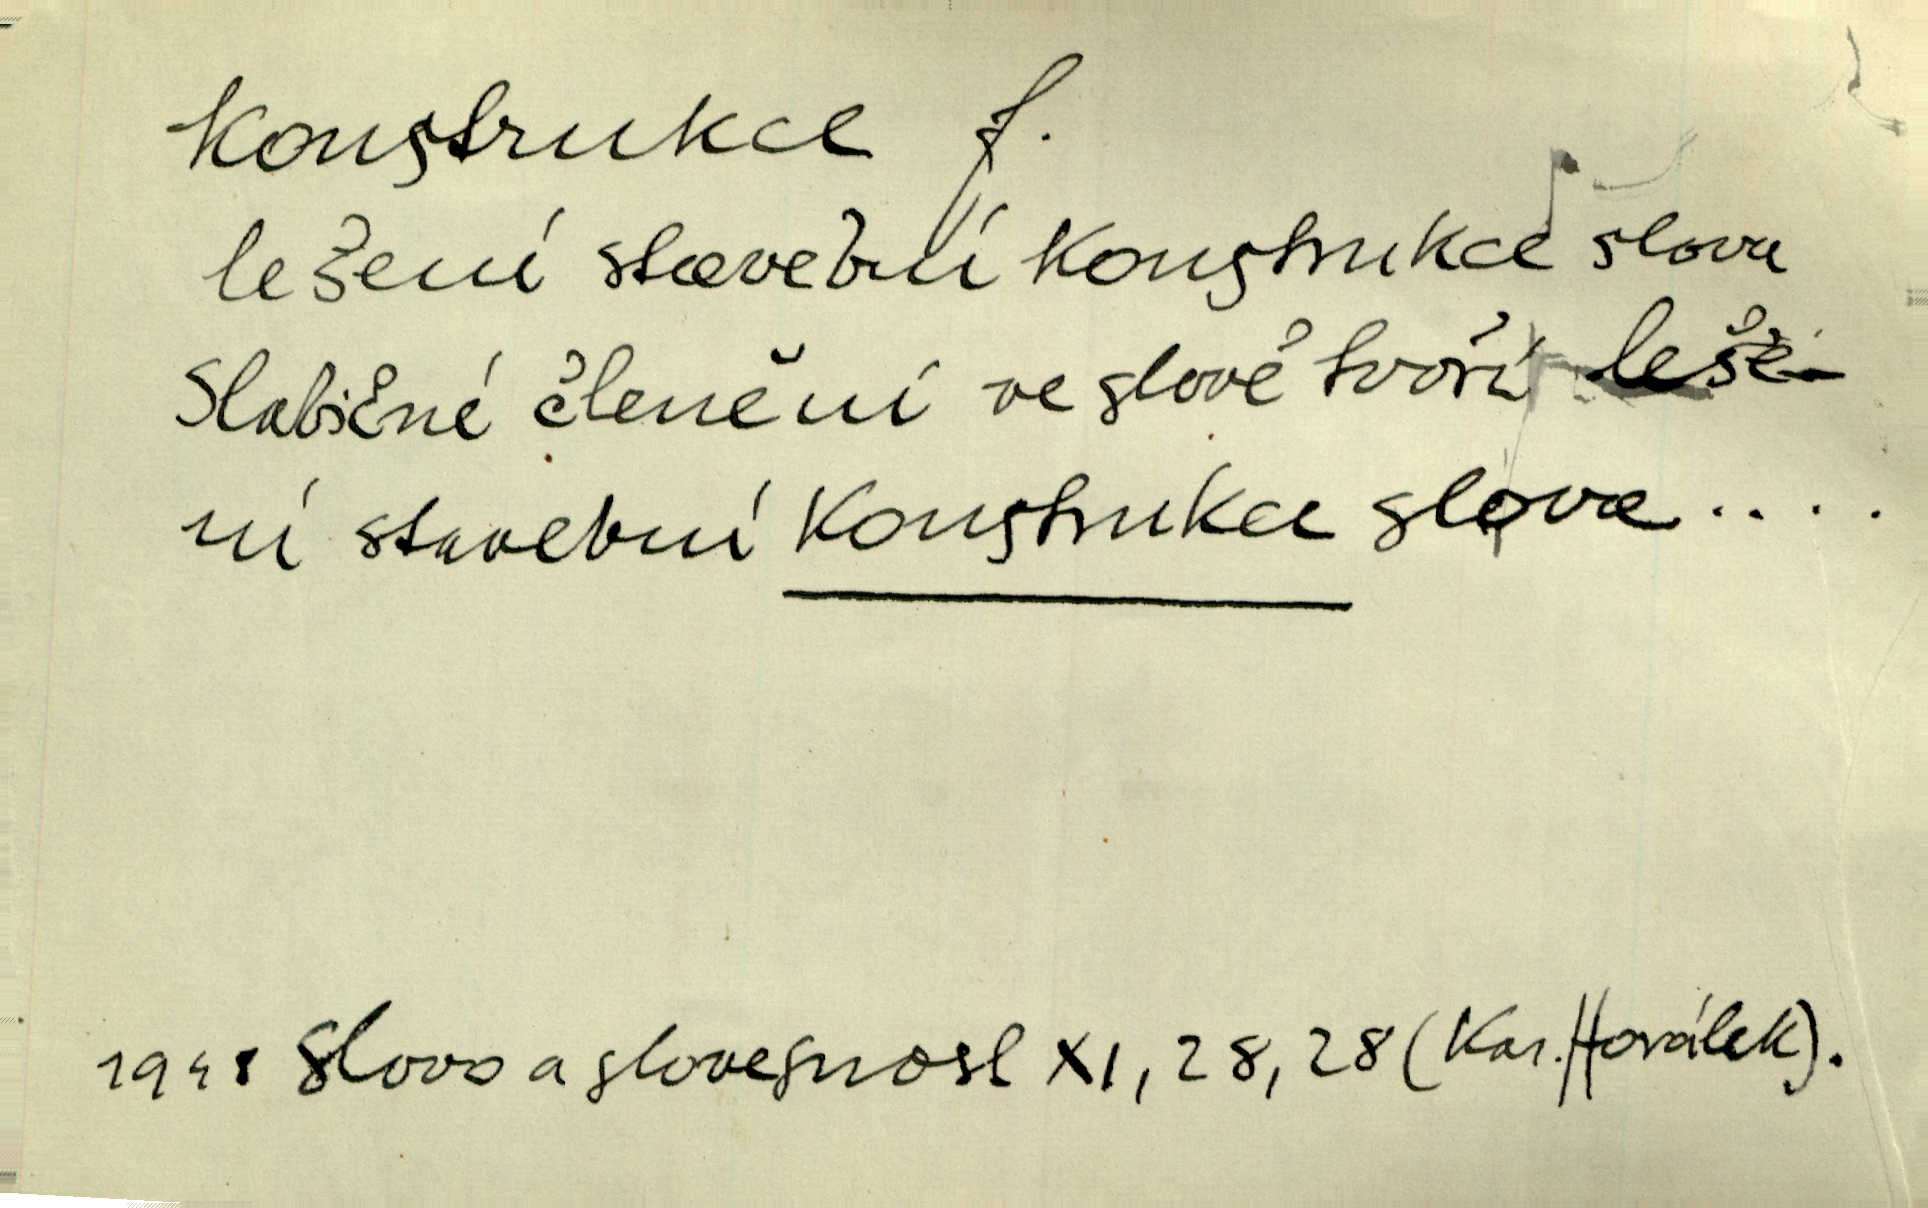 konstrukce f.
lešení stavební konstrukce slova
Slabičné členění ve slově tvoří leše-
ní stavební konstrukce slova....
Slovo a slovesnost XI, 28, 28 (Kar. Horálek).